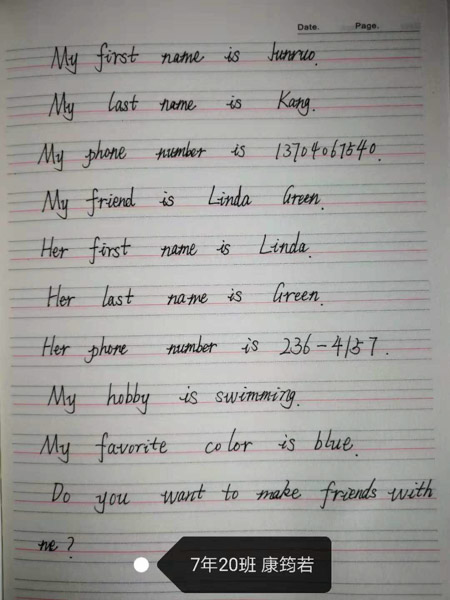 Date. Page.
My first name is Junruo.
My last name is Kang.
My phone number is 13704067540.
My friend is Linda Green.
Her first name is Linda.
Her last name is Green.
Her phone number is 236-4157.
My hobby is swimming.
My favorite color is blue.
Do you want to make friends with
me?
7年20班 康筠若